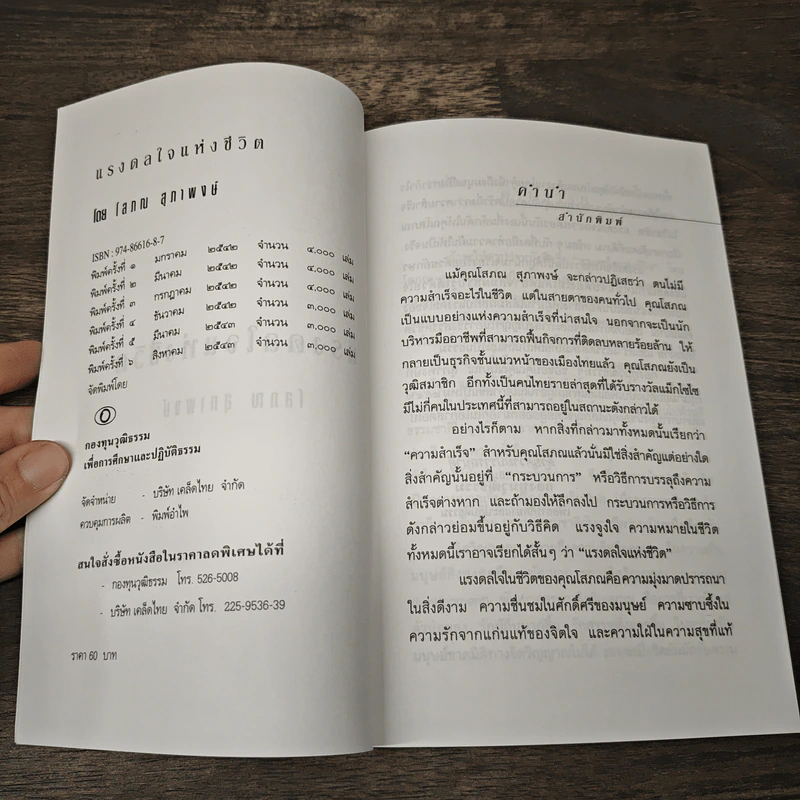 แรงดลใจแห่งชีวิต
โดย โสภณ สุภาพงษ์
ISBN : 974-86616-8-7
พิมพ์ครั้งที่ ๑ มกราคม ๒๕๔๒ จำนวน ๔,๐๐๐ เล่ม
พิมพ์ครั้งที่ ๒ มีนาคม ๒๕๔๒ จำนวน ๔,๐๐๐ เล่ม
พิมพ์ครั้งที่ ๓ กรกฎาคม ๒๕๔๒ จำนวน ๔,๐๐๐ เล่ม
พิมพ์ครั้งที่ ๔ ธันวาคม ๒๕๔๒ จำนวน ๓,๐๐๐ เล่ม
พิมพ์ครั้งที่ ๕ มีนาคม ๒๕๔๓ จำนวน ๓,๐๐๐ เล่ม
พิมพ์ครั้งที่ ๖ สิงหาคม ๒๕๔๓ จำนวน ๓,๐๐๐ เล่ม
จัดพิมพ์โดย
กองทุนวุฒิธรรม
เพื่อการศึกษาและปฏิบัติธรรม
จัดจำหน่าย - บริษัท เคล็ดไทย จำกัด
ควบคุมการผลิต - พิมพ์อำไพ
สนใจสั่งซื้อหนังสือในราคาลดพิเศษได้ที่
- กองทุนวุฒิธรรม โทร. 526-5008
- บริษัท เคล็ดไทย จำกัด โทร. 225-9536-39
ราคา 60 บาท
คำนำ
สำนักพิมพ์
แม้คุณโสภณ สุภาพงษ์ จะกล่าวปฏิเสธว่า ตนไม่มี
ความสำเร็จอะไรในชีวิต แต่ในสายตาของคนทั่วไป คุณโสภณ
เป็นแบบอย่างแห่งความสำเร็จที่น่าสนใจ นอกจากจะเป็นนัก
บริหารมืออาชีพที่สามารถฟื้นกิจการที่ติดลบหลายร้อยล้าน ให้
กลายเป็นธุรกิจชั้นแนวหน้าของเมืองไทยแล้ว คุณโสภณยังเป็น
วุฒิสมาชิก อีกทั้งเป็นคนไทยรายล่าสุดที่ได้รับรางวัลแม็กไซไซ
มีไม่กี่คนในประเทศนี้ที่สามารถอยู่ในสถานะดังกล่าวได้
อย่างไรก็ตาม หากสิ่งที่กล่าวมาทั้งหมดนั้นเรียกว่า
“ความสำเร็จ” สำหรับคุณโสภณแล้วนั่นมิใช่สิ่งสำคัญแต่อย่างใด
สิ่งสำคัญนั้นอยู่ที่ “กระบวนการ” หรือวิธีการบรรลุถึงความ
สำเร็จต่างหาก และถ้ามองให้ลึกลงไป กระบวนการหรือวิธีการ
ดังกล่าวย่อมขึ้นอยู่กับวิธีคิด แรงจูงใจ ความหมายในชีวิต
ทั้งหมดนี้เราอาจเรียกได้สั้นๆ ว่า “แรงดลใจแห่งชีวิต”
แรงดลใจในชีวิตของคุณโสภณคือความมุ่งมาดปรารถนา
ในสิ่งดีงาม ความชื่นชมในศักดิ์ศรีของมนุษย์ ความซาบซึ้งใน
ความรักจากแก่นแท้ของจิตใจ และความใฝ่ในความสุขที่แท้